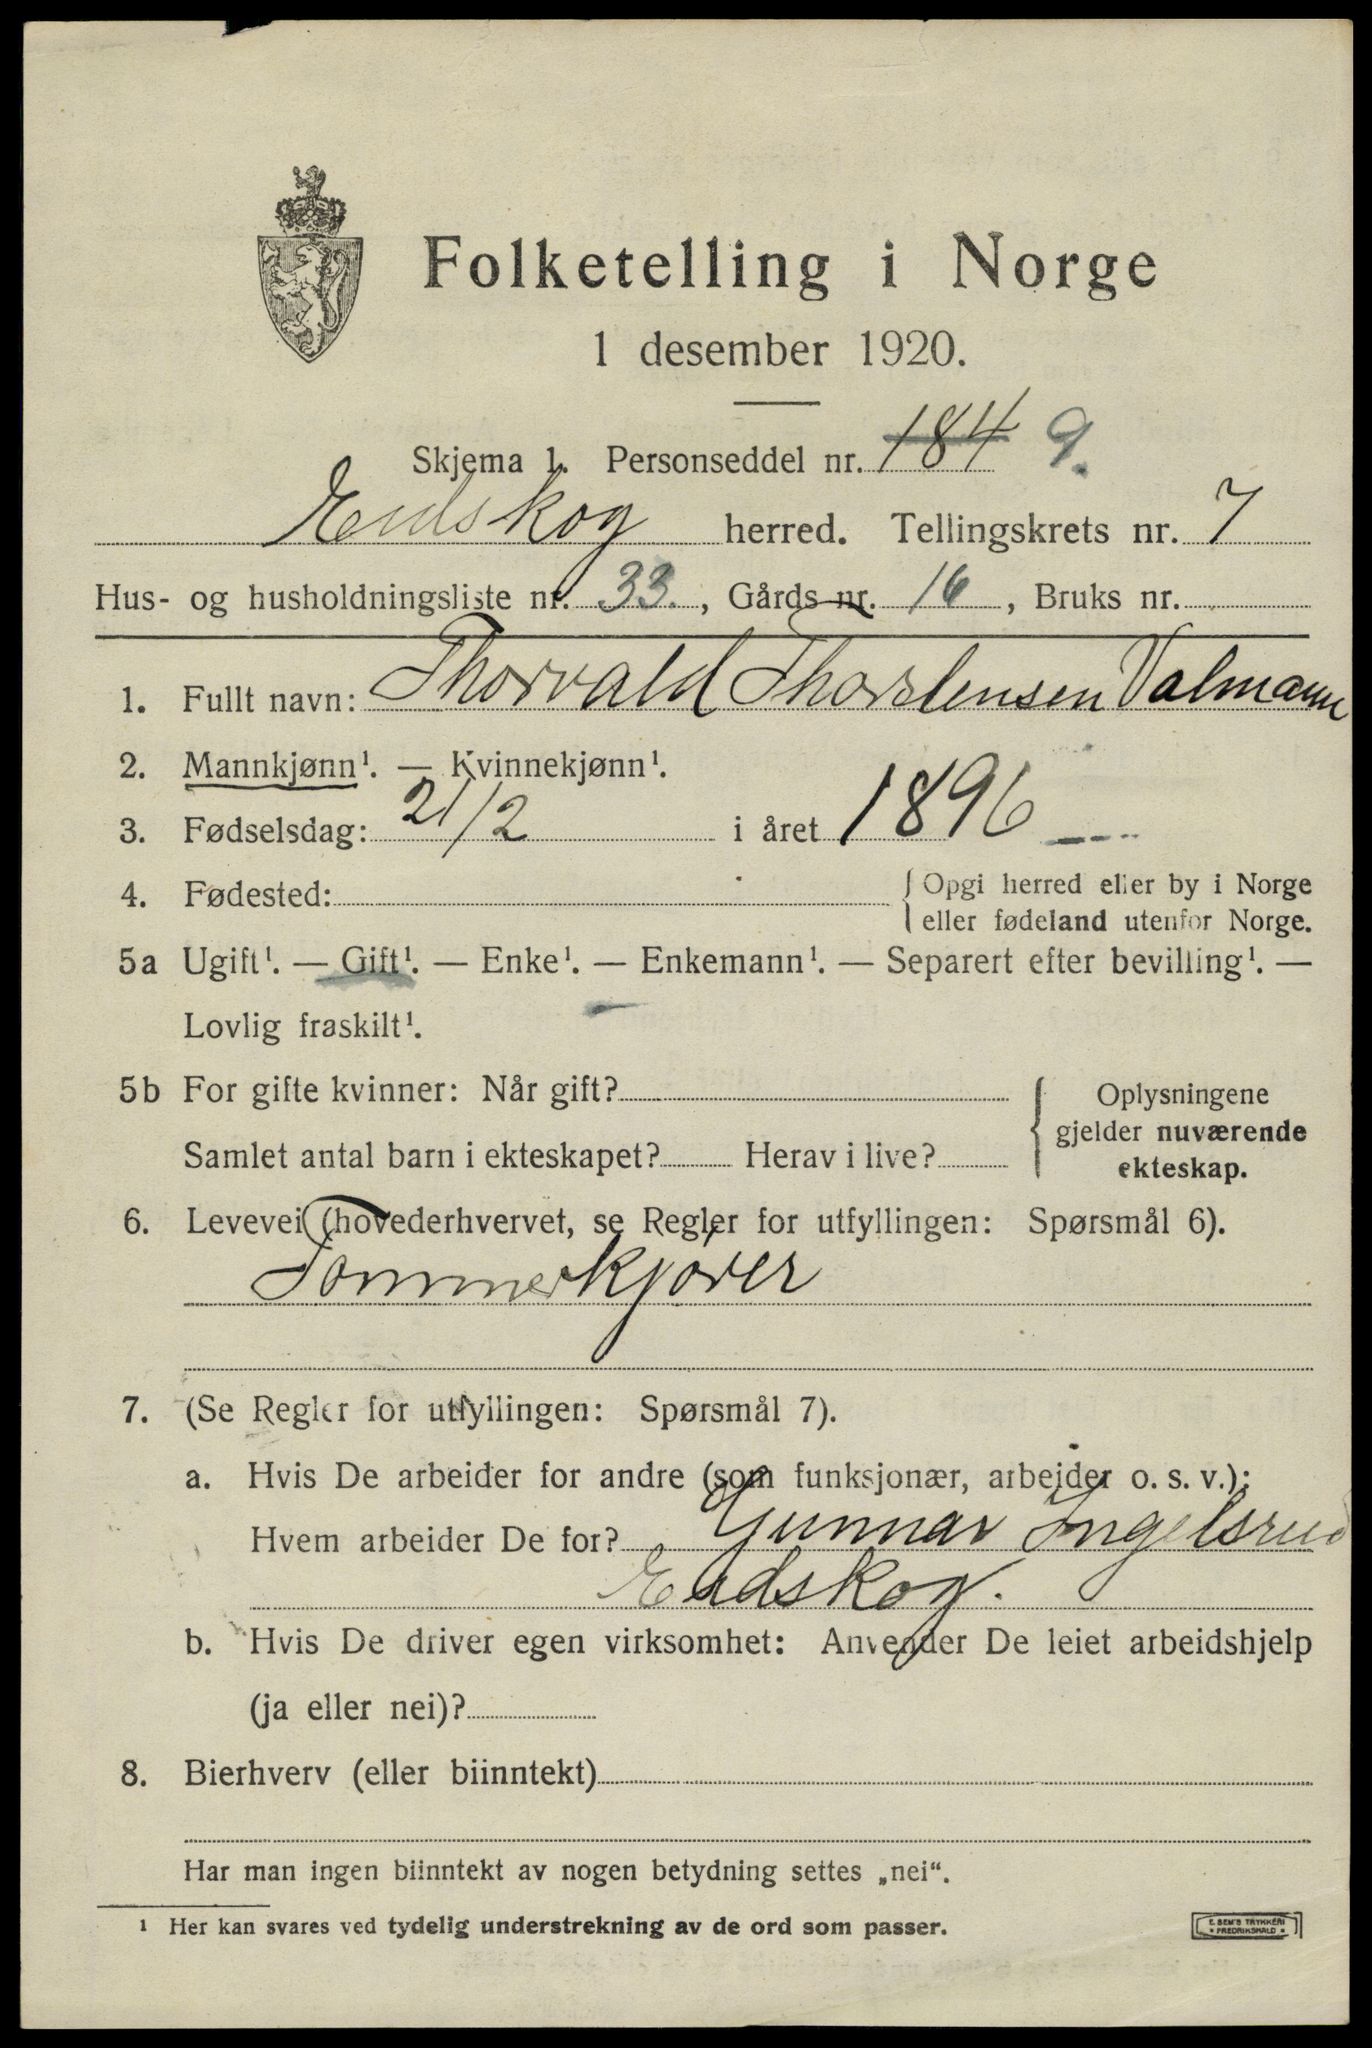 Folketelling i Norge
1 desember 1920.
Skjema 1. Personseddel nr. 184 9.
Eidskog herred. Tellingskrets nr. 7
Hus- og husholdningsliste nr. 33., Gårds nr. 16, Bruks nr.
1. Fullt navn: Thorvald Thorstensen Valmann
2. Mannkjønn¹. — Kvinnekjønn¹.
3. Fødselsdag: 21/2 i året 1896
4. Fødested: { Opgi herred eller by i Norge
eller fødeland utenfor Norge.
5a Ugift¹. — Gift¹. — Enke¹. — Enkemann¹. — Separert efter bevilling¹. —
Lovlig fraskilt¹.
5b For gifte kvinner: Når gift?
Samlet antal barn i ekteskapet? Herav i live?
{ Oplysningene
gjelder nuværende
ekteskap.
6. Levevei (hovederhvervet, se Regler for utfyllingen: Spørsmål 6).
Tømmerkjører
7. (Se Regler for utfyllingen: Spørsmål 7).
a. Hvis De arbeider for andre (som funksjonær, arbeider o. s. v.):
Hvem arbeider De for? Gunnar Ingelsrud
Eidskog.
b. Hvis De driver egen virksomhet: Anvender De leiet arbeidshjelp
(ja eller nei)?
8. Bierhverv (eller biinntekt)
Har man ingen biinntekt av nogen betydning settes „nei“.
¹ Her kan svares ved tydelig understrekning av de ord som passer.
E. SEM'S TRYKKERI
* FREDRIKSHALD *